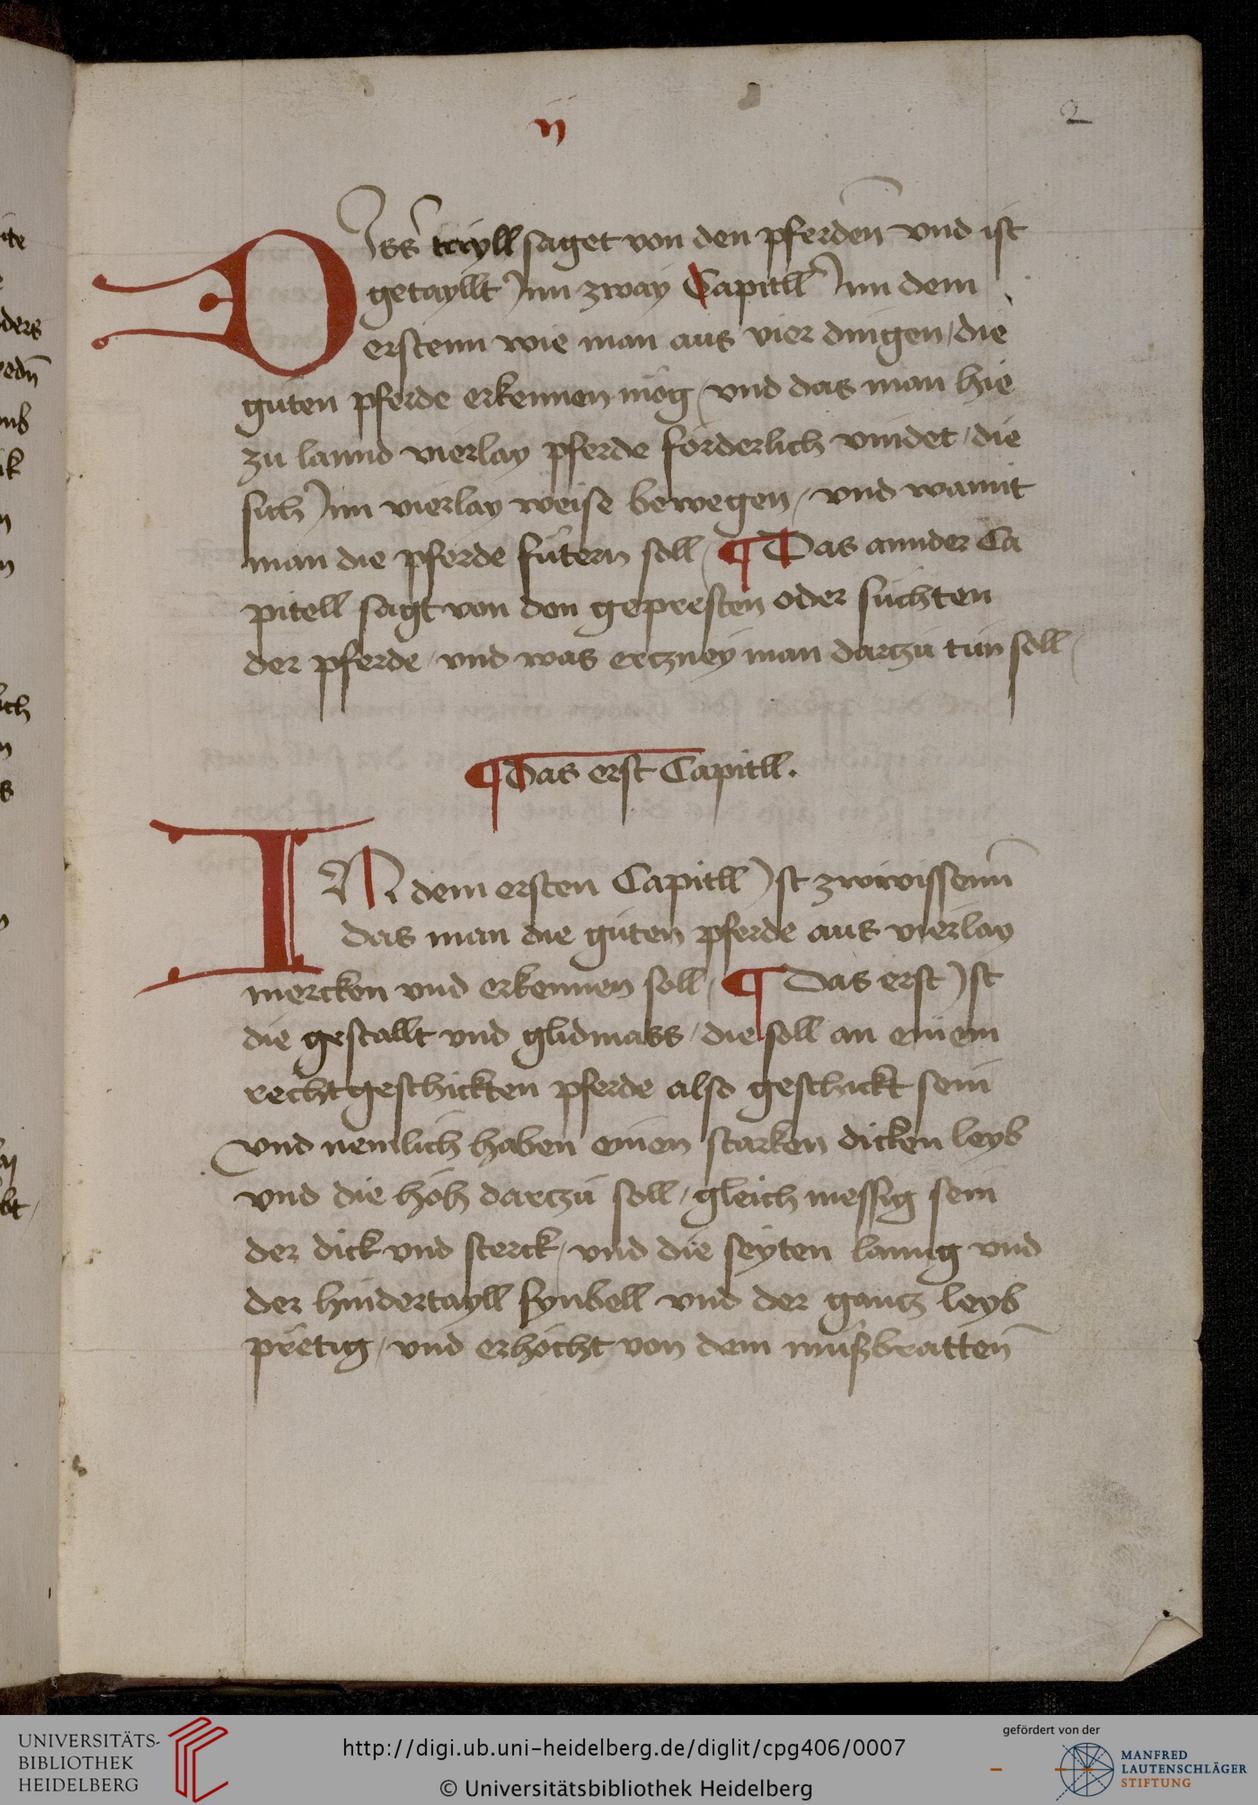 ij
2
DJss tayll saget von den pferden̄ vnd ist
getayllt Jnn zway Capitll Jnn dem
erstenn wie man aus vier dingen / die
guten pferde erkennen mög / vnd das man hie
zu lannd vierlay pferde förderlich vindet / die
sich Jnn vierlay weise bewegen / vnd wamit
man die pferde fütern soll / ¶ Das annder Ca
pitell sagt von den gepresten oder suchten
der pferde / vnd was erczney man darczu tun soll /
¶ Das erst Capitll.
IN dem ersten Capitll Jst zwwissenn̄
das man die guten pferde aus vierlay
mercken vnd erkennen soll / ¶ Das erst Jst
die gestallt vnd glidmass / die soll an einem
recht geschickten pferde also geschickt sein
vnd nemlich haben einen starken dicken leyb
vnd die höh darczu soll / gleich messig sein
der dick vnd sterck / vnd die seyten lanng vnd
der hindertayll synbell vnd der gancz leyb
pretig / vnd erhöcht von dem mußbratten̄
UNIVERSITÄTS-
BIBLIOTHEK
HEIDELBERG
http://digi.ub.uni-heidelberg.de/diglit/cpg406/0007
© Universitätsbibliothek Heidelberg
gefördert von der
MANFRED
LAUTENSCHLÄGER
STIFTUNG